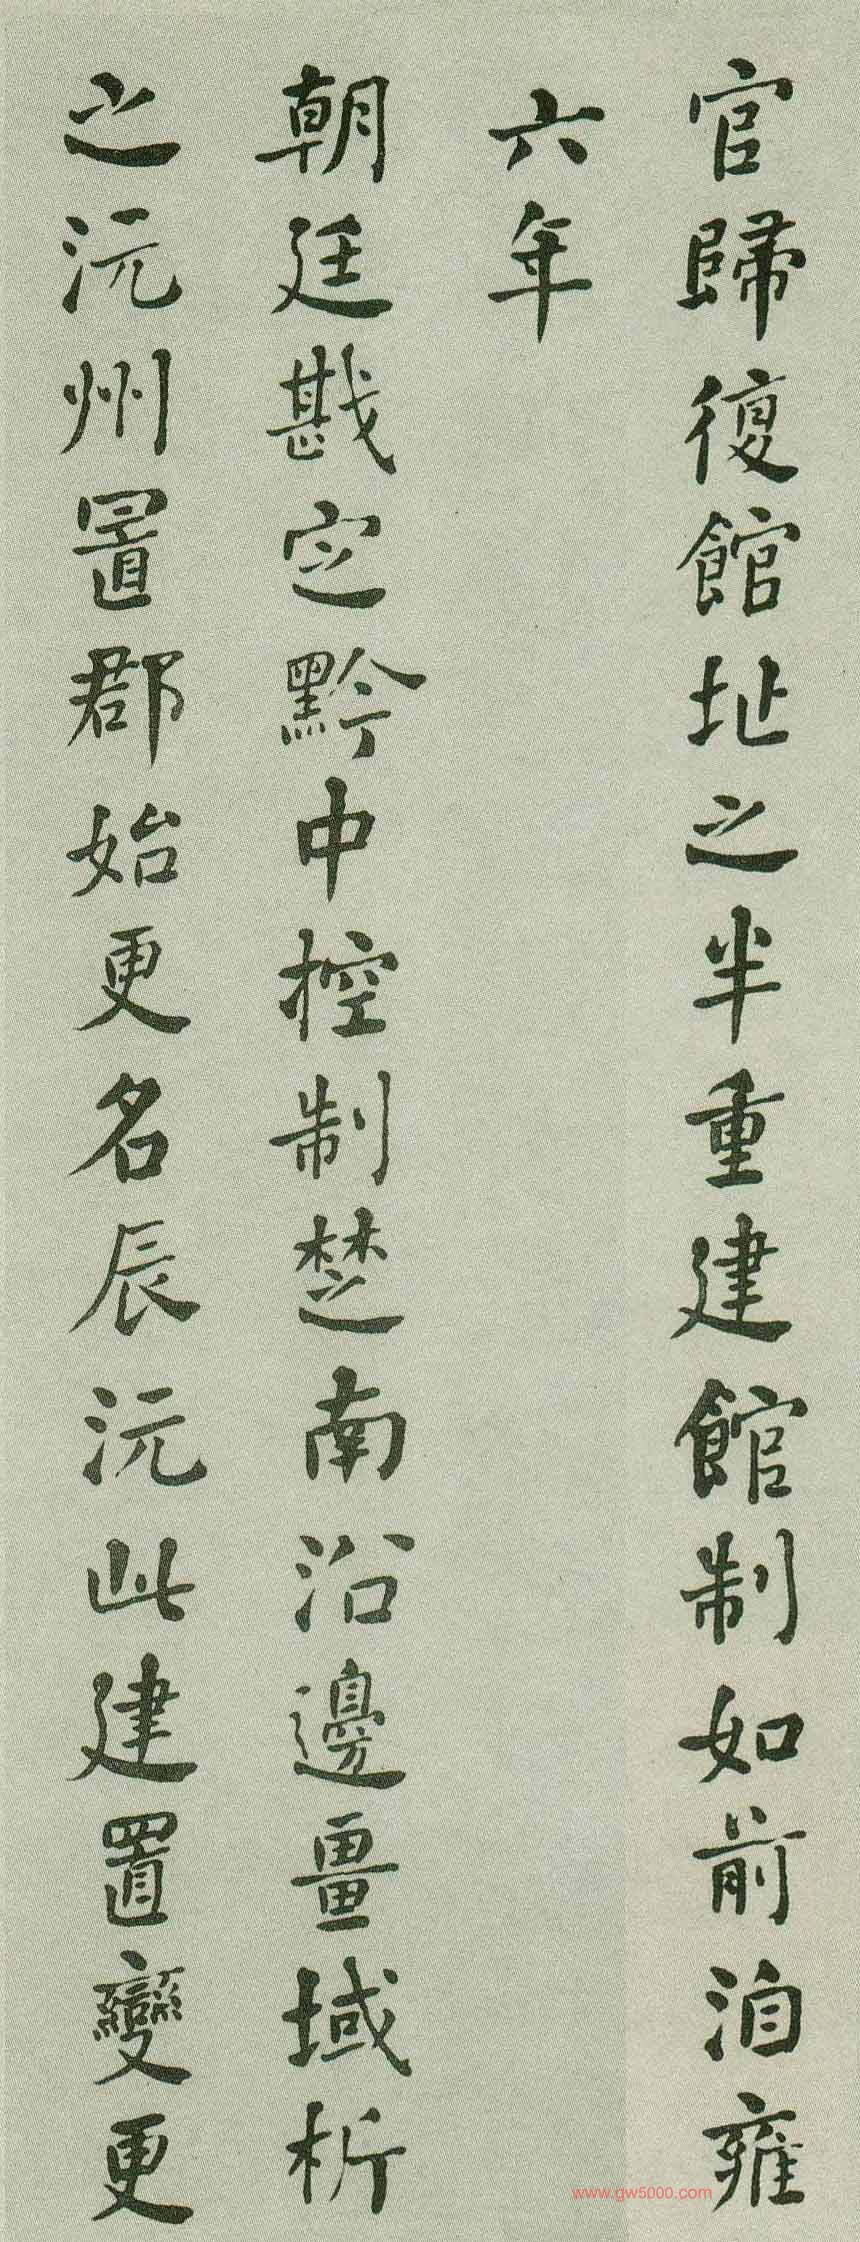 官歸復館址之半重建館制如前洎雍
六年
朝廷戡定黔中控制楚南沿邊畺域析
之沅州置郡始更名辰沅此建置變更
www.gw5000.com